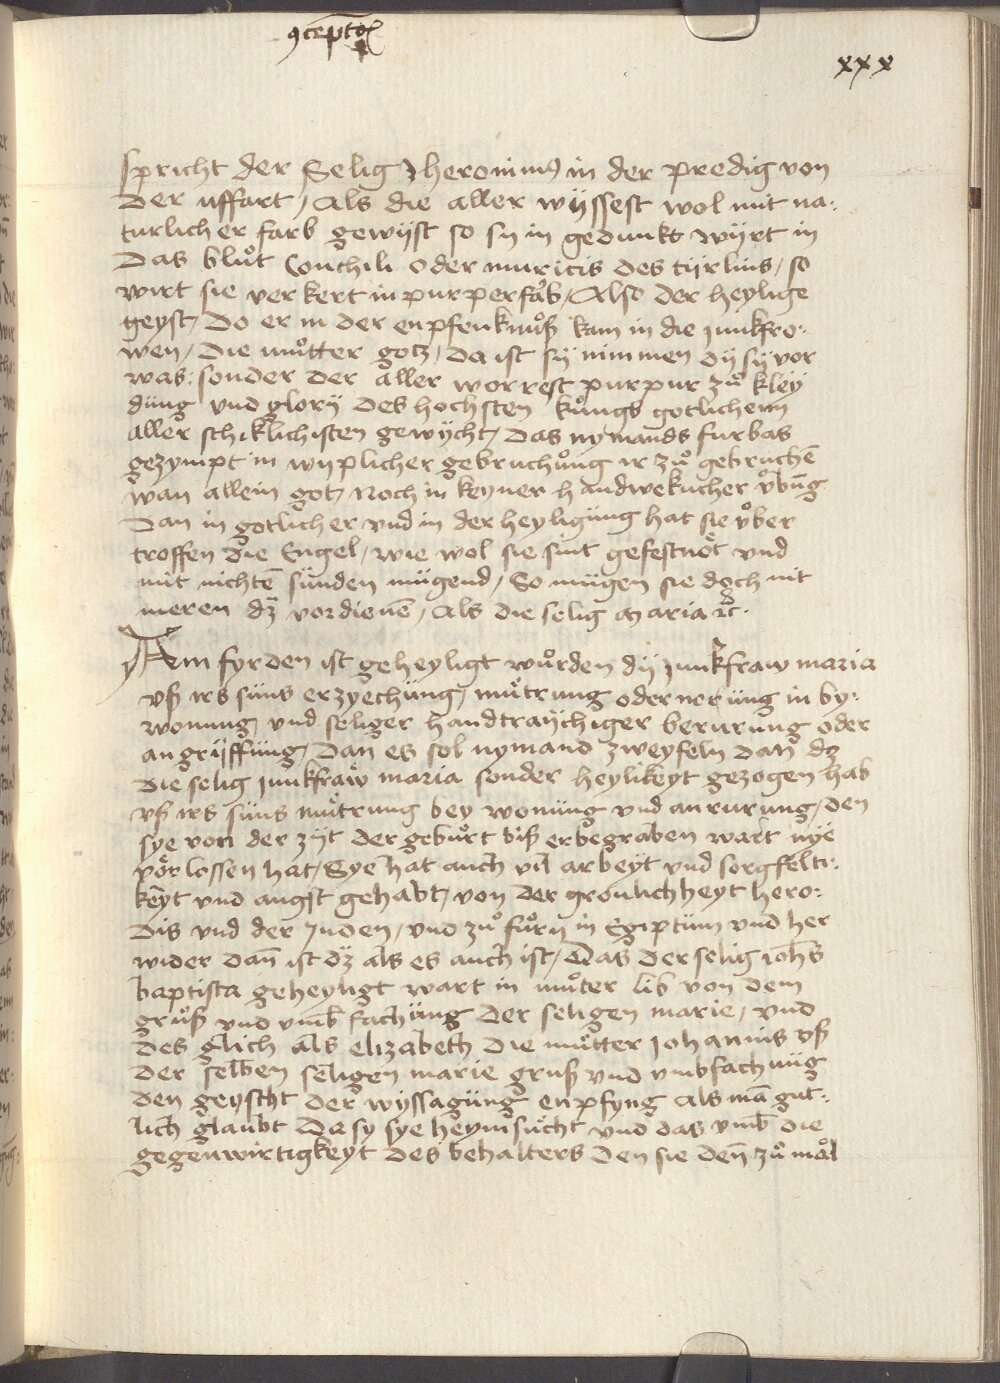 xxx
spricht der Selig Jheronimꝰ in der predig von
Der uffart / Als die aller wyssest wol mit na:
turlicher farb gewyst so sy in gedunkt wyrt in
Das bluͦt Conchili oder muricis des tyrlins / so
wirt sie verkert in purperfab / Also der heylige
geyst / Do er in der enpfenknuͦß kam in die junkfro:
wen / Die muͦtter gotz / da ist sy nimmen dy sy vor
was: sonder der aller worrest purpur zuͦ kley
dung vnd glory des hochsten kuͦngs gotlichem
aller schiklichisten gewycht / Das nymands furbas
gezympt in wyplicher gebruchuͦng ir zuͦ gebruchē
wan allein got / Noch in keyner handwerkucher uͦbūg
Dan in gotlicher vnd in der heyligung hat sie uͦber
troffen die Engel / wie wol sie sint gefestnöt vnd
mit nichtē sunden mugend / So mugen sie doch nit
meren dz vordienē / Als die selig Maria ꝛc̄.
Am fyrden ist geheyligt wuͦrden dy junkfraw maria
vß irs suns erzyechung / muͦtrung oder nerung in by:
wonung / vnd seliger handtraychiger berurung oder
angryffung / Dan es sol nymand zweyfeln dan dz
die selig junkfraw maria sonder heylikeyt gezogen hab
vß irs suns muͦtrung bey wonung vnd anrurung / den
sye von der zyt der gebuͦrt biß er begraben wart nye
vorlossen hat / Sye hat auch vil arbeyt vnd sorgfelti:
keyt vnd angst gehabt / von der gronlichheyt hero:
dis vnd der Juden / vnd zuͦ fuͦrn in Egiptum vnd her
wider dan̄ ist dz als es auch ist / Das der selig ioh̄s
baptista geheyligt wart in muͦter lib von dem
gruͦß vnd vmb fachung der seligen marie / vnd
des glich als elizabeth die muͦtter Johannis vß
der selben seligen marie gruß vnd vmbfachung
den geyscht der wyssagung enpfyng als mā gut:
lich glaubt Da sy sye heymsuͦcht vnd das vmb die
gegenwirtigkeyt des behalters den sie den̄ zuͦ mal